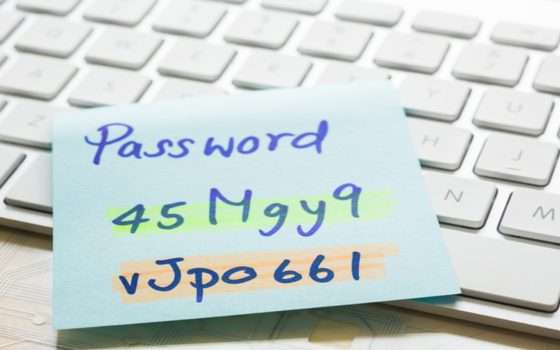 Password
45Mgy9
vJpo661
H
J
N
M